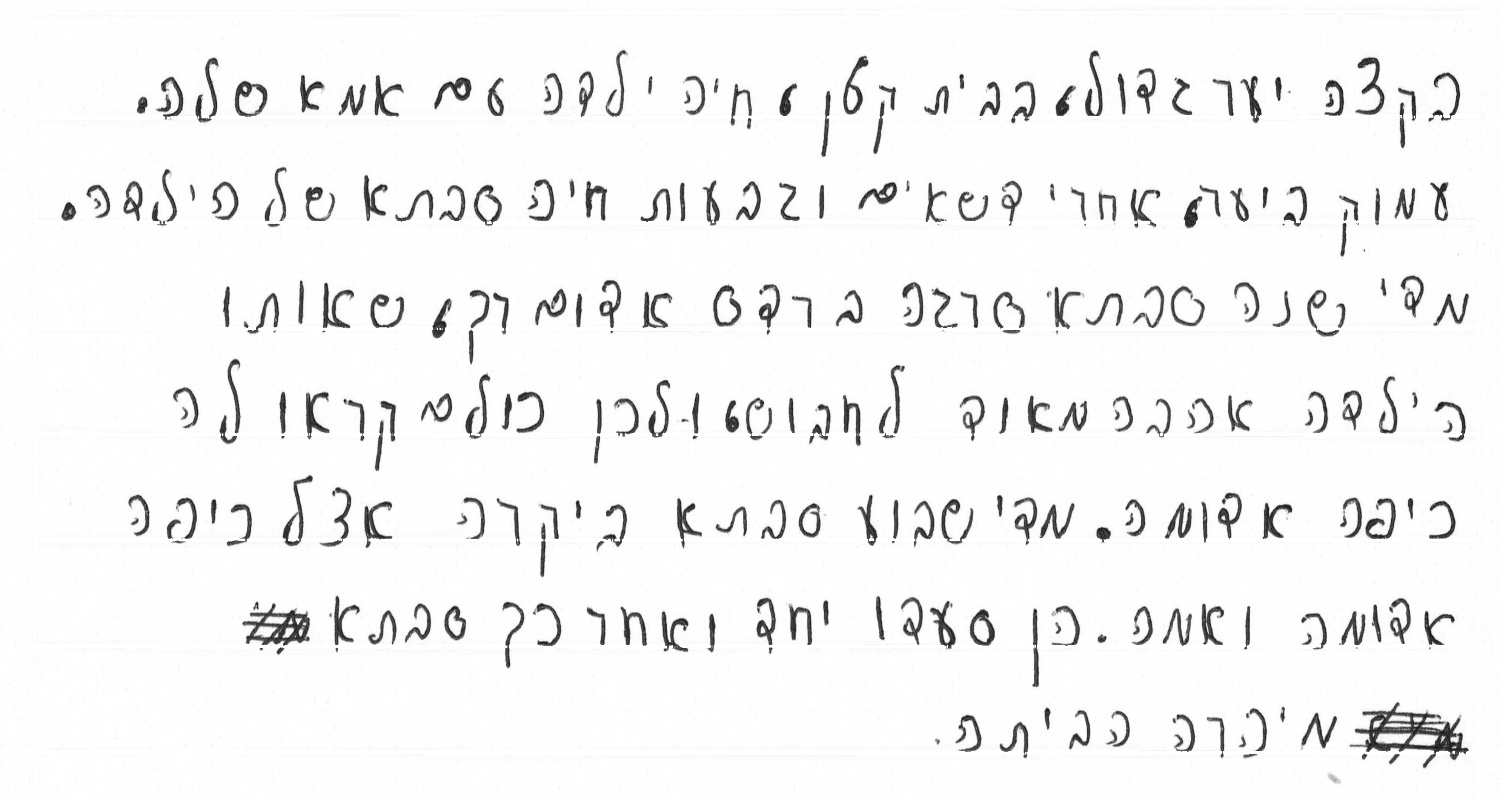 בקצה יער גדול, בבית קטן, חיה ילדה עם אמא שלה.
עמוק ביער, אחרי דשאים וגבעות חיה סבתא של הילדה.
מדי שנה סבתא סרגה ברדס אדום רק, שאותו
הילדה אהבה מאוד לחבוש, ולכן כולם קראו לה
כיפה אדומה. מדי שבוע סבתא ביקרה אצל כיפה
אדומה ואמה. הן סעדו יחד ואחר כך סבתא
מיהרה הביתה.